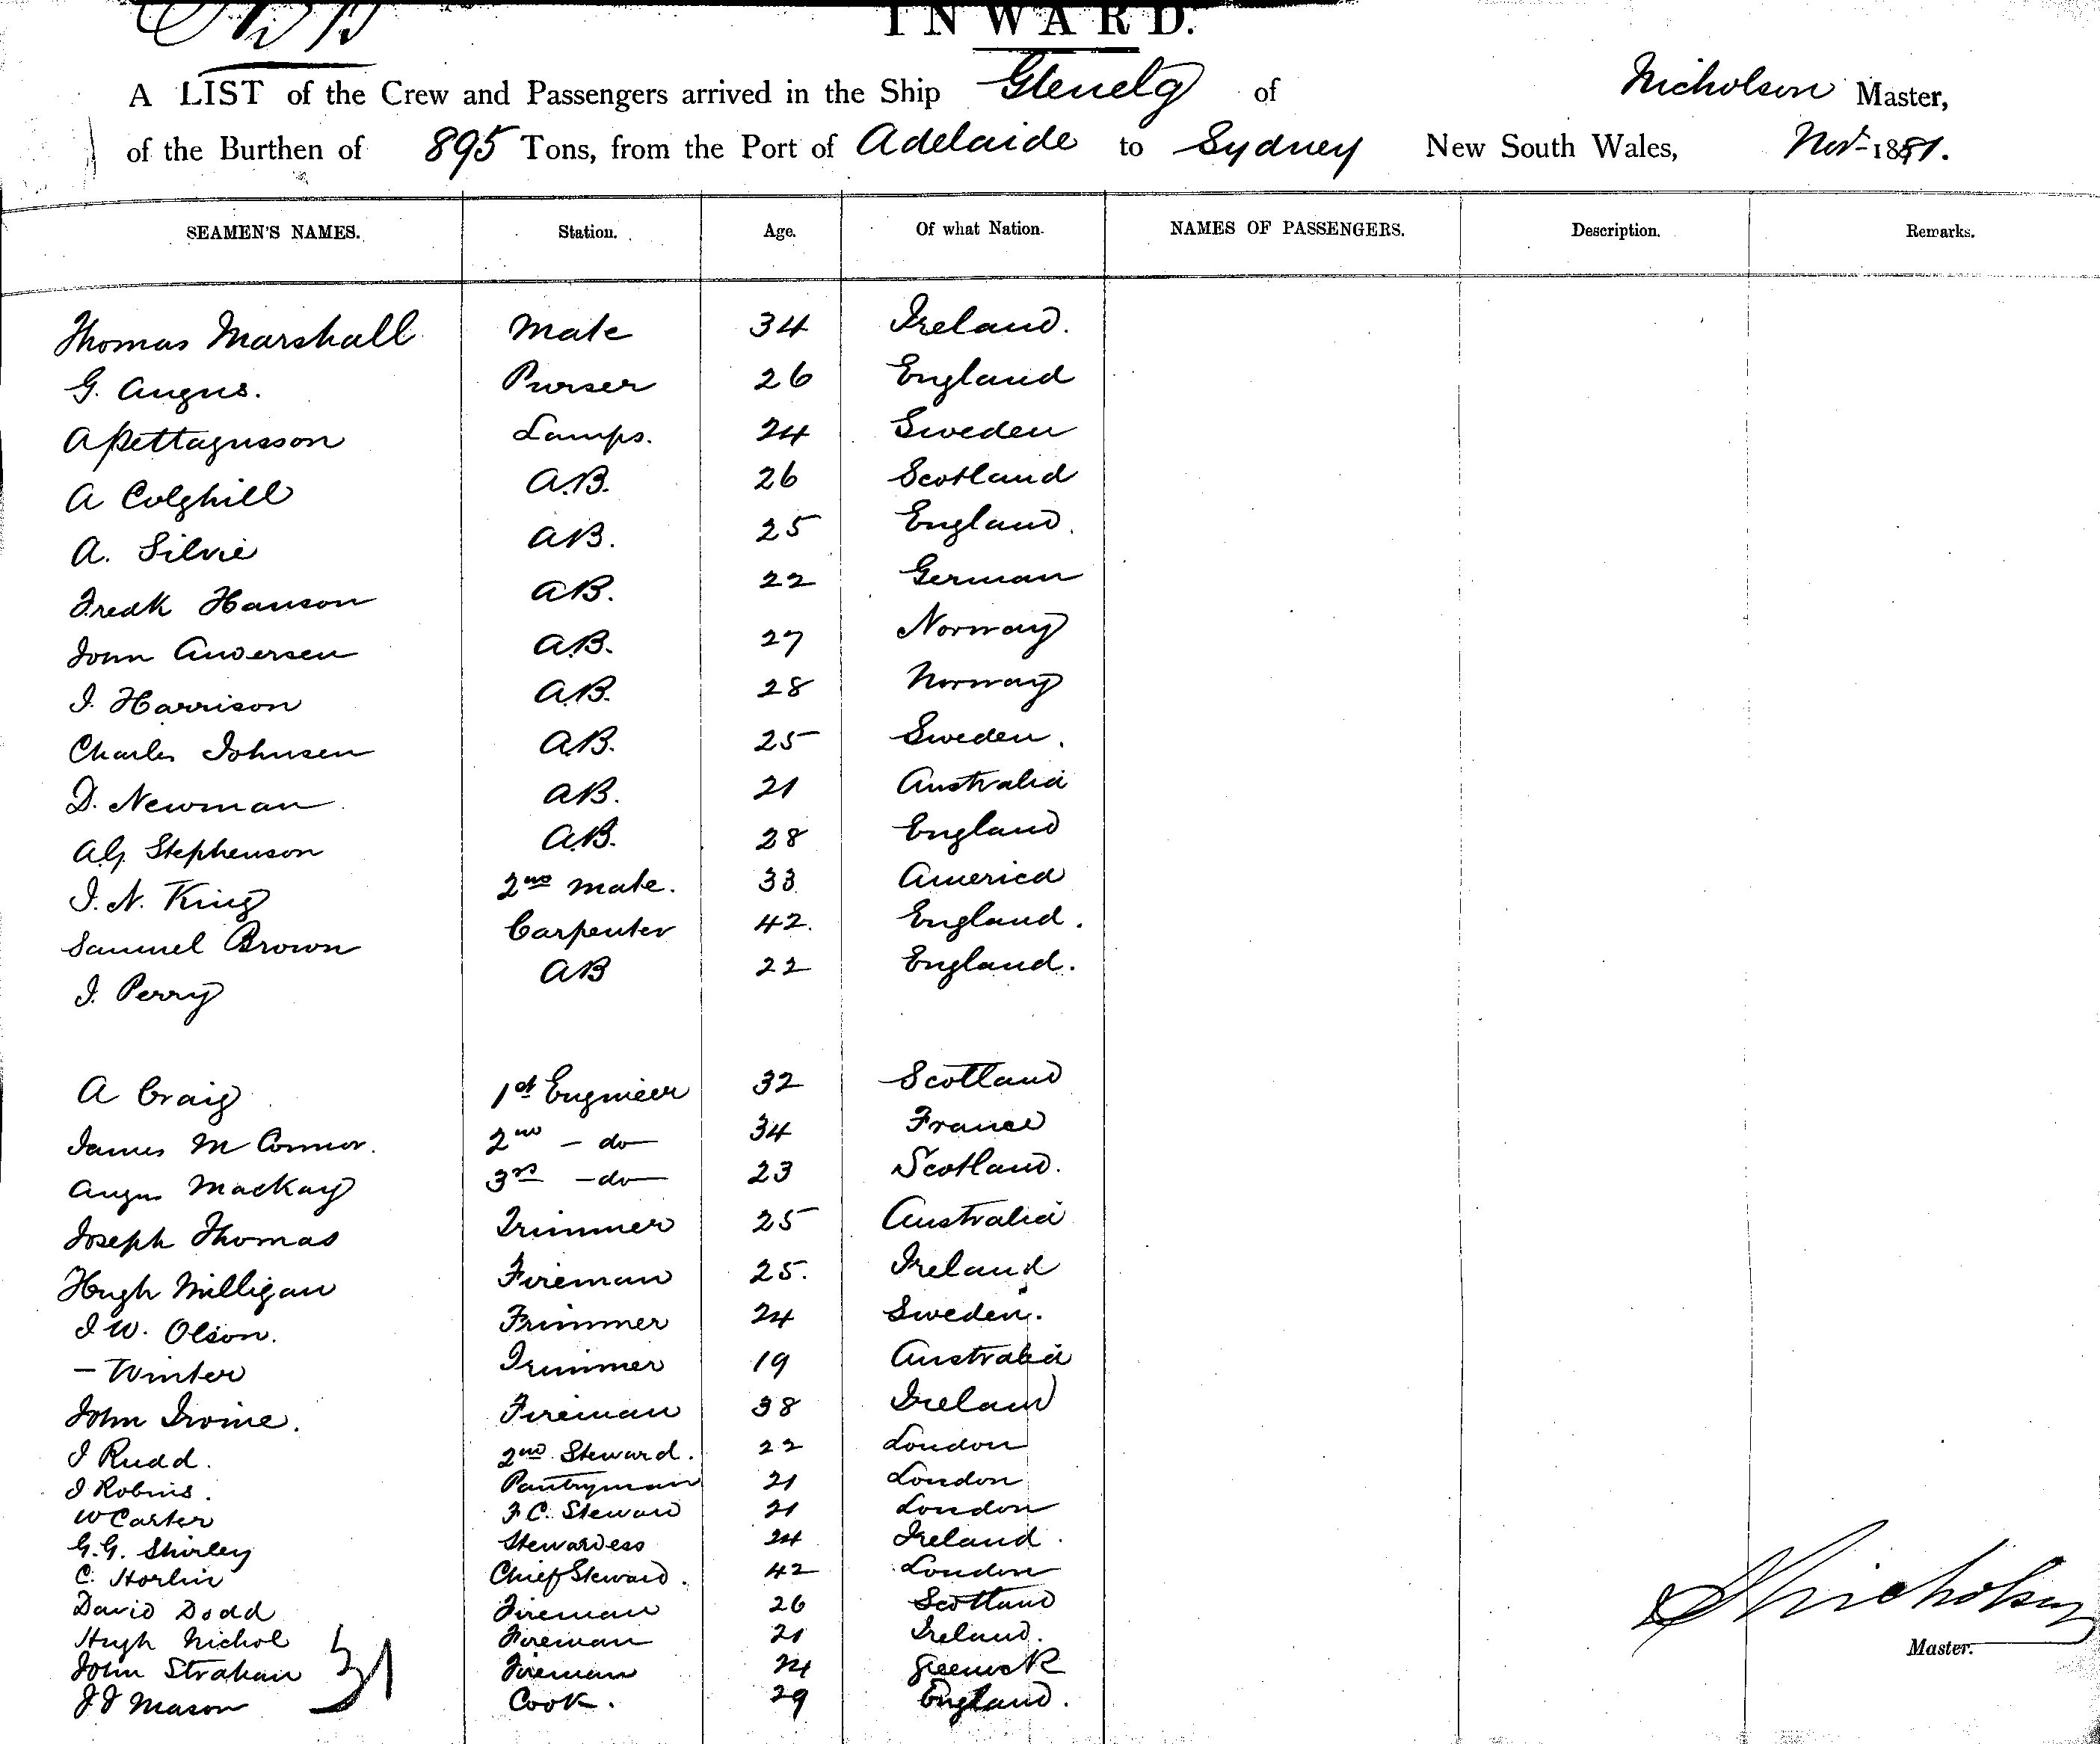 INWARD.
A LIST of the Crew and Passengers arrived in the Ship Glenelg of Nicholson Master,
of the Burthen of 895 Tons, from the Port of Adelaide to Sydney New South Wales, Novr 1881.
SEAMEN'S NAMES. Station. Age. Of what Nation. NAMES OF PASSENGERS. Description. Remarks.
Thomas Marshall Mate 34 Ireland.
G. Angus. Purser 26 England
A Pettagusson Lamps. 24 Sweden
A Colghill A.B. 26 Scotland
A. Silvie AB. 25 England.
Fredk Hanson AB. 22 German
John Andersen A.B. 27 Norway
J. Harrison A.B. 28 Norway
Charles Johnsen A.B. 25 Sweden.
D. Newman AB. 21 Australia
A.G. Stephenson A.B. 28 England
J. N. King 2nd Mate. 33 America
Samuel Brown Carpenter 42. England.
J. Perry AB 22 England.
A Craig 1st Engineer 32 Scotland
James McConnor. 2nd - do - 34 France
Angus Mackay 3rd - do - 23 Scotland.
Joseph Thomas Trimmer 25 Australia
Hugh Milligan Fireman 25. Ireland
J W. Olson. Trimmer 24 Sweden.
- Winter Trimmer 19 Australia
John Irvine. Fireman 38 Ireland
J Rudd. 2nd Steward. 22 London
J Robins. Pantryman 21 London
W Carter F.C. Steward 21 London
G.G. Shirley Stewardess 24 Ireland.
C. Horlin Chief Steward. 42 London
David Dodd Fireman 26 Scotland
Hugh Nichol Fireman 21 Ireland.
John Strahan Fireman 24 Greenock
J J Mason Cook. 29 England.
31
Nicholson
Master.